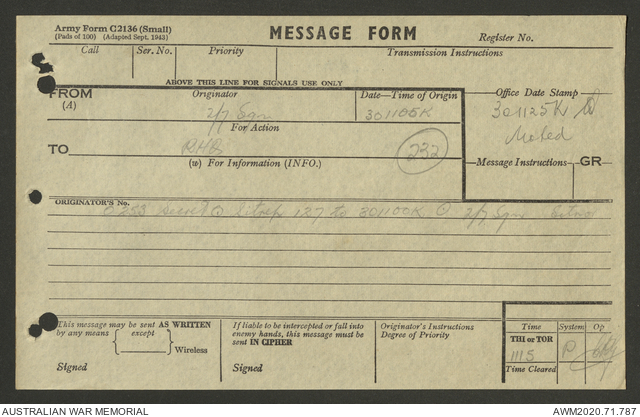 Army Form C2136 (Small)
(Pads of 100) (Adapted Sept. 1943)
MESSAGE FORM
Register No.
Call Ser. No. Priority Transmission Instructions
ABOVE THIS LINE FOR SIGNALS USE ONLY
FROM
(A)
Originator
2/7 Sqn
Date—Time of Origin
301105K
Office Date Stamp
301125K
Noted
For Action
TO
RHQ
232
(w) For Information (INFO.)
Message Instructions GR
ORIGINATOR'S No.
O253 Secret Sitrep 127 to 301100K 2/7 Sqn
This message may be sent AS WRITTEN
by any means except
Wireless
Signed
If liable to be intercepted or fall into
enemy hands, this message must be
sent IN CIPHER
Signed
Originator's Instructions
Degree of Priority
Time System Op
THI or TOR
1115 P
Time Cleared
AUSTRALIAN WAR MEMORIAL
AWM2020.71.787